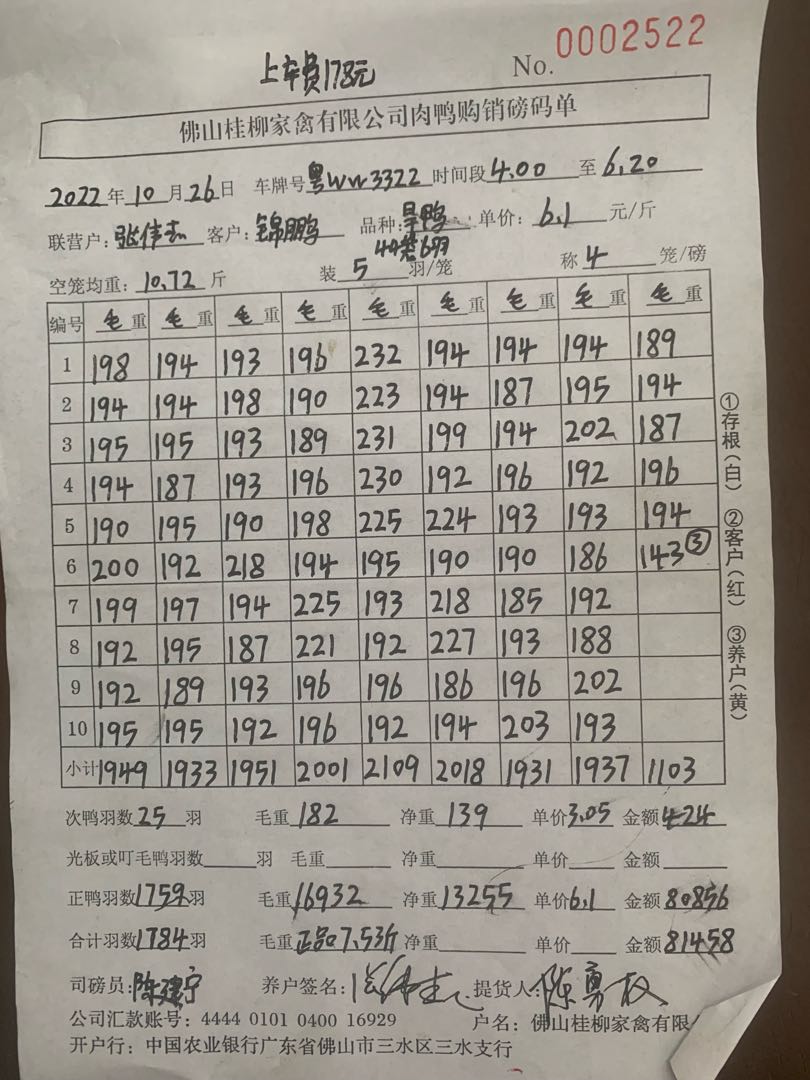 上车费178元
No. 0002522
佛山桂柳家禽有限公司肉鸭购销磅码单
2022年10月26日 车牌号粤WW3322时间段4.00至6.20
联营户:张伟志 客户:锦鹏 品种:旱鸭 单价:6.1元/斤
49笼6羽
空笼均重:10.72斤 装5羽/笼 称4笼/磅
编号 毛重 毛重 毛重 毛重 毛重 毛重 毛重 毛重 毛重
1 198 194 193 196 232 194 194 194 189
2 194 194 198 190 223 194 187 195 194
3 195 195 193 189 231 199 194 202 187
4 194 187 193 196 230 192 196 192 196
5 190 195 190 198 225 224 193 193 194
6 200 192 218 194 195 190 190 186 143③
7 199 197 194 225 193 218 185 192
8 192 195 187 221 192 227 193 188
9 192 189 193 196 196 186 196 202
10 195 195 192 196 192 194 203 193
小计 1949 1933 1951 2001 2109 2018 1931 1937 1103
①存根(白) ②客户(红) ③养户(黄)
次鸭羽数25羽 毛重182 净重139 单价3.05 金额424
光板或叮毛鸭羽数 羽 毛重 净重 单价 金额
正鸭羽数1759羽 毛重16932 净重13255 单价6.1 金额80856
合计羽数1784羽 毛重正品7.53斤 净重 单价 金额81458
司磅员:陈建宁 养户签名: 提货人:陈勇权
公司汇款账号:4444 0101 0400 16929 户名:佛山桂柳家禽有限
开户行:中国农业银行广东省佛山市三水区三水支行